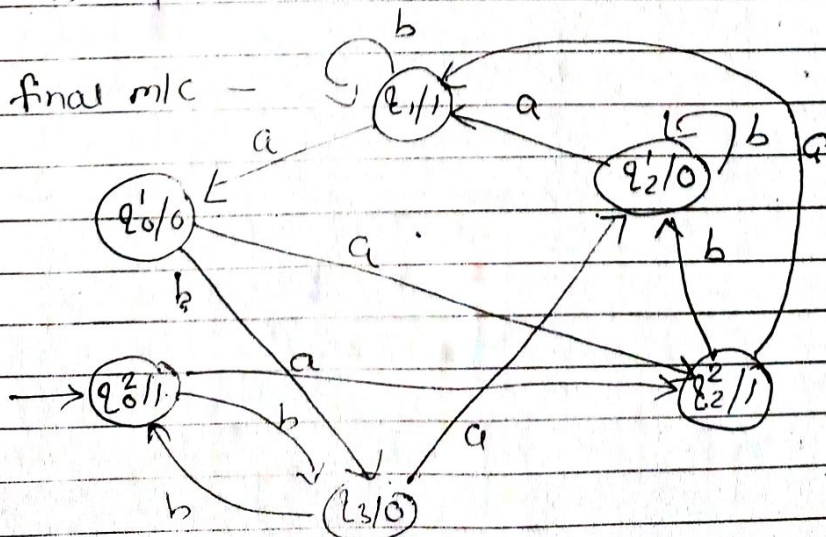 b
final m/c -
q1/1
a
a
b
a
q2^1/0
q0^1/0
a
b
b
a
q0^2/1
b
q2^2/1
a
b
q3/0